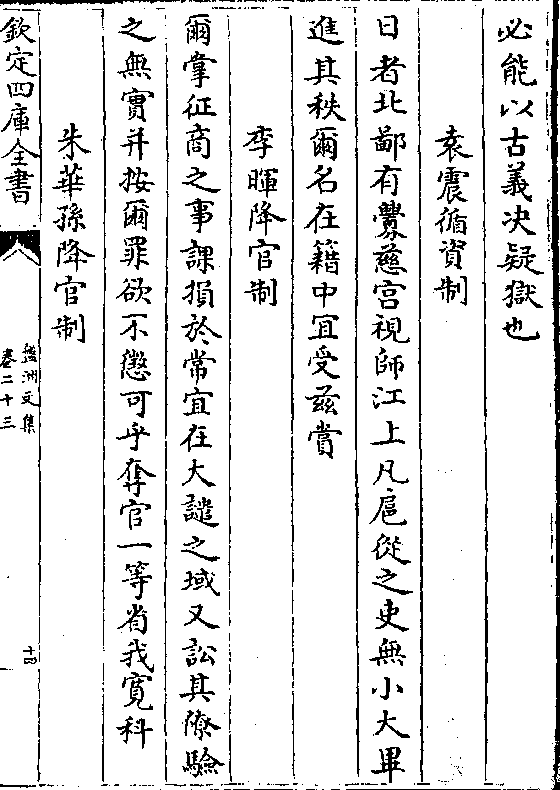 必能以古義决疑獄也
袁震循資制
日者北鄙有釁慈宫視師江上凡扈從之吏無小大畢
進其秩爾名在籍中宜受兹賞
李暉降官制
爾掌征商之事課損於常宜在大譴之域又訟其僚驗
之無實并按爾罪欲不懲可乎奪官一等省我寛科
朱華孫降官制
欽定四庫全書
盤洲文集
卷二十三
十四